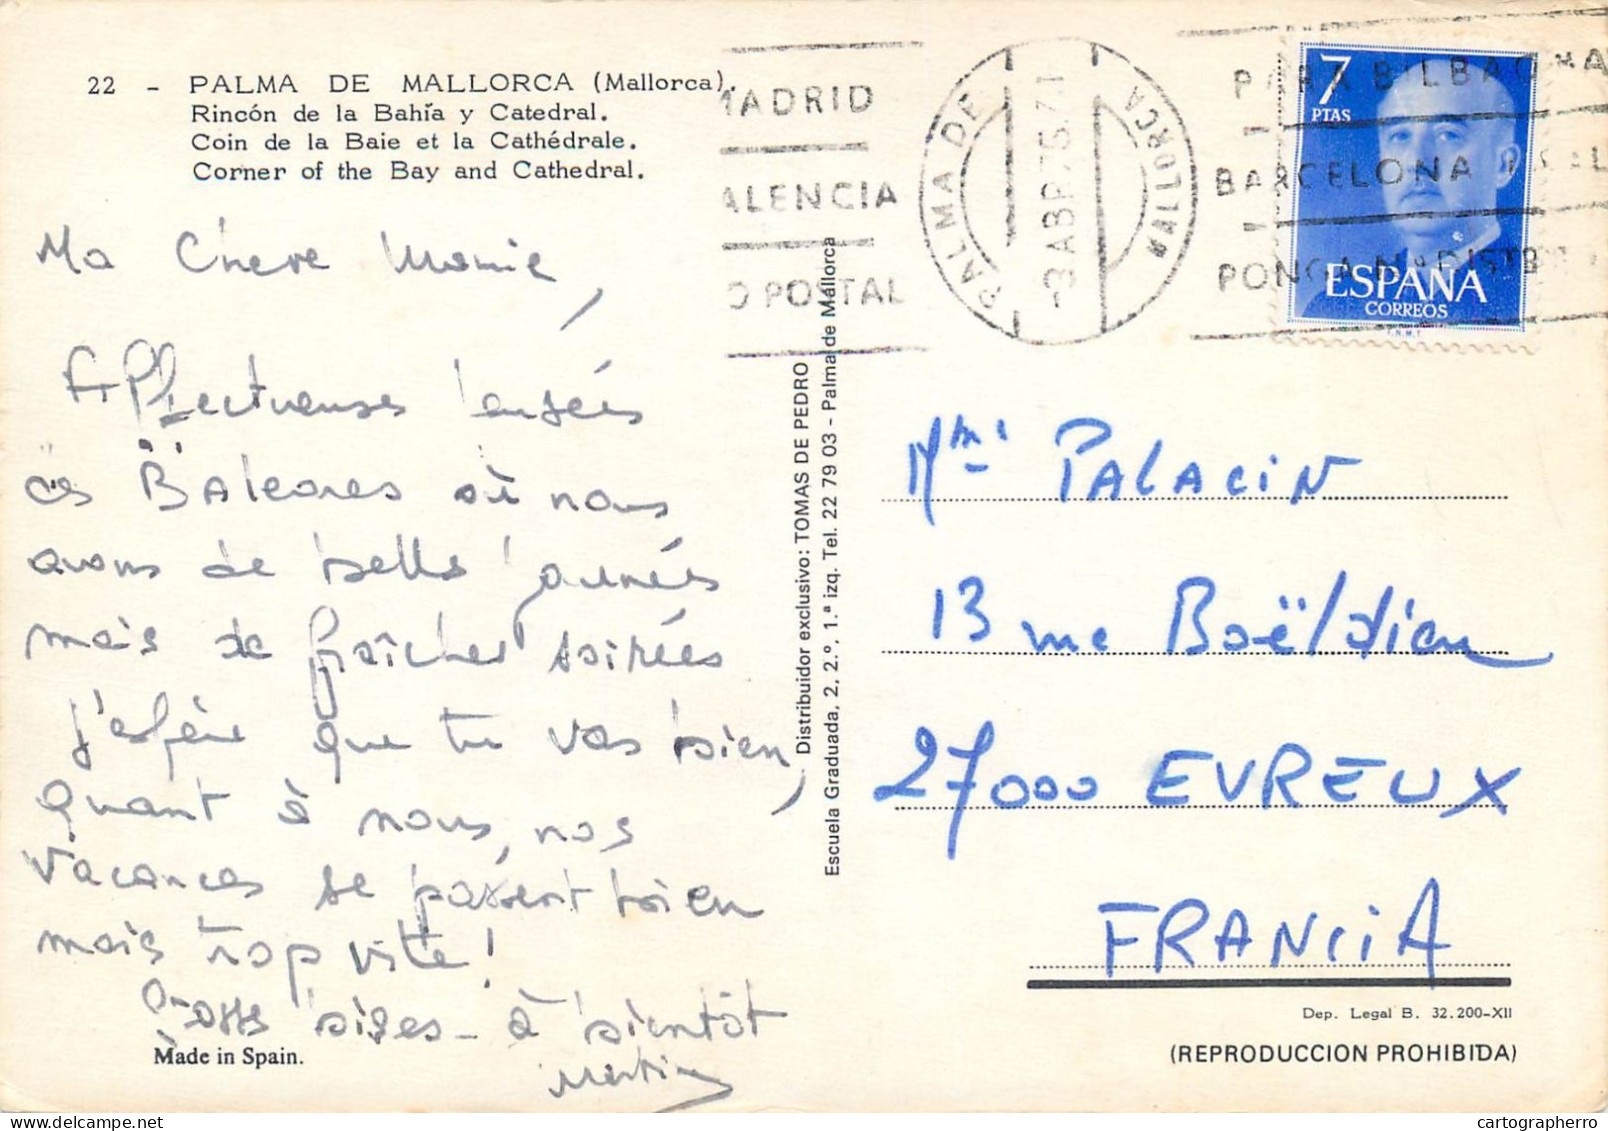 22 - PALMA DE MALLORCA (Mallorca).
Rincón de la Bahía y Catedral.
Coin de la Baie et la Cathédrale.
Corner of the Bay and Cathedral.
Ma Chere Mamie,
Affectueuses Pensées
des Baleares où nous
avons de belles journées
mais de fraîches soirées
j'espère que tu vas bien,
quant à nous, nos
vacances se passent bien
mais trop vite!
Grosses bises - à bientôt
Made in Spain.
Distribuidor exclusivo: TOMAS DE PEDRO
Escuela Graduada, 2, 2.º, 1.ª izq. Tel. 22 79 03 - Palma de Mallorca
MADRID
ALENCIA
O POSTAL
PALMA DE MALLORCA
-3 ABR. 75.
PARA BILBAO
BARCELONA
PONGA
7
PTAS
ESPAÑA
CORREOS
F.N.M.T.
Mme PALACIN
13 rue Boëldieu
27000 EVREUX
FRANCIA
Dep. Legal B. 32.200-XII
(REPRODUCCION PROHIBIDA)
cartographerro